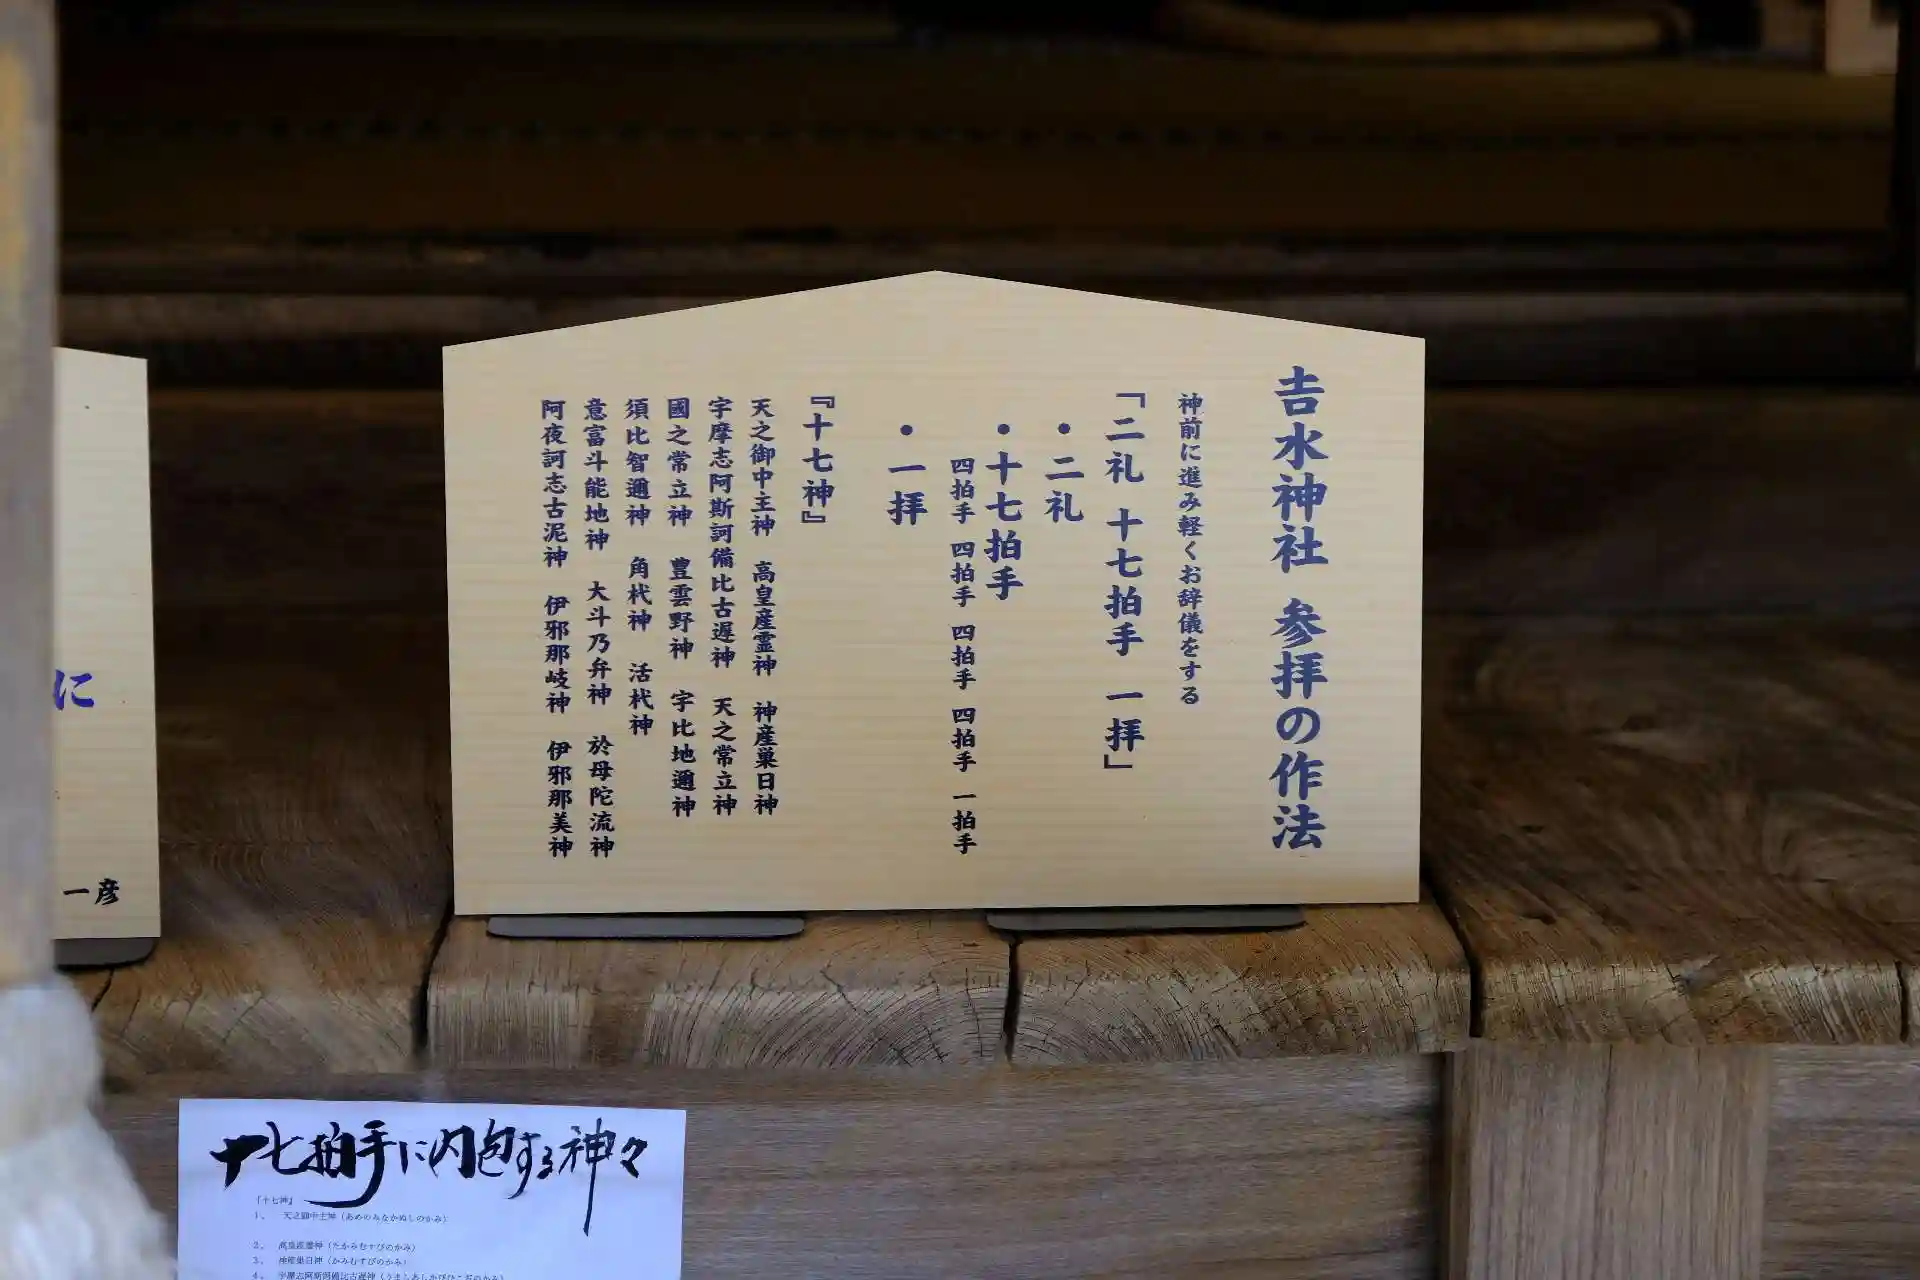 𠮷水神社 参拝の作法
神前に進み軽くお辞儀をする
「二礼 十七拍手 一拝」
・二礼
・十七拍手
四拍手 四拍手 四拍手 四拍手 一拍手
・一拝
『十七神』
天之御中主神 高皇産霊神 神産巣日神
宇摩志阿斯訶備比古遅神 天之常立神
國之常立神 豊雲野神 宇比地邇神
須比智邇神 角杙神 活杙神
意富斗能地神 大斗乃弁神 於母陀流神
阿夜訶志古泥神 伊邪那岐神 伊邪那美神
に
一彦
十七拍手に内包する神々
『十七神』
1、 天之御中主神（あめのみなかぬしのかみ）
2、 高皇産霊神（たかみむすびのかみ）
3、 神産巣日神（かみむすびのかみ）
4、 宇摩志阿斯訶備比古遅神（うましあしかびひこぢのかみ）